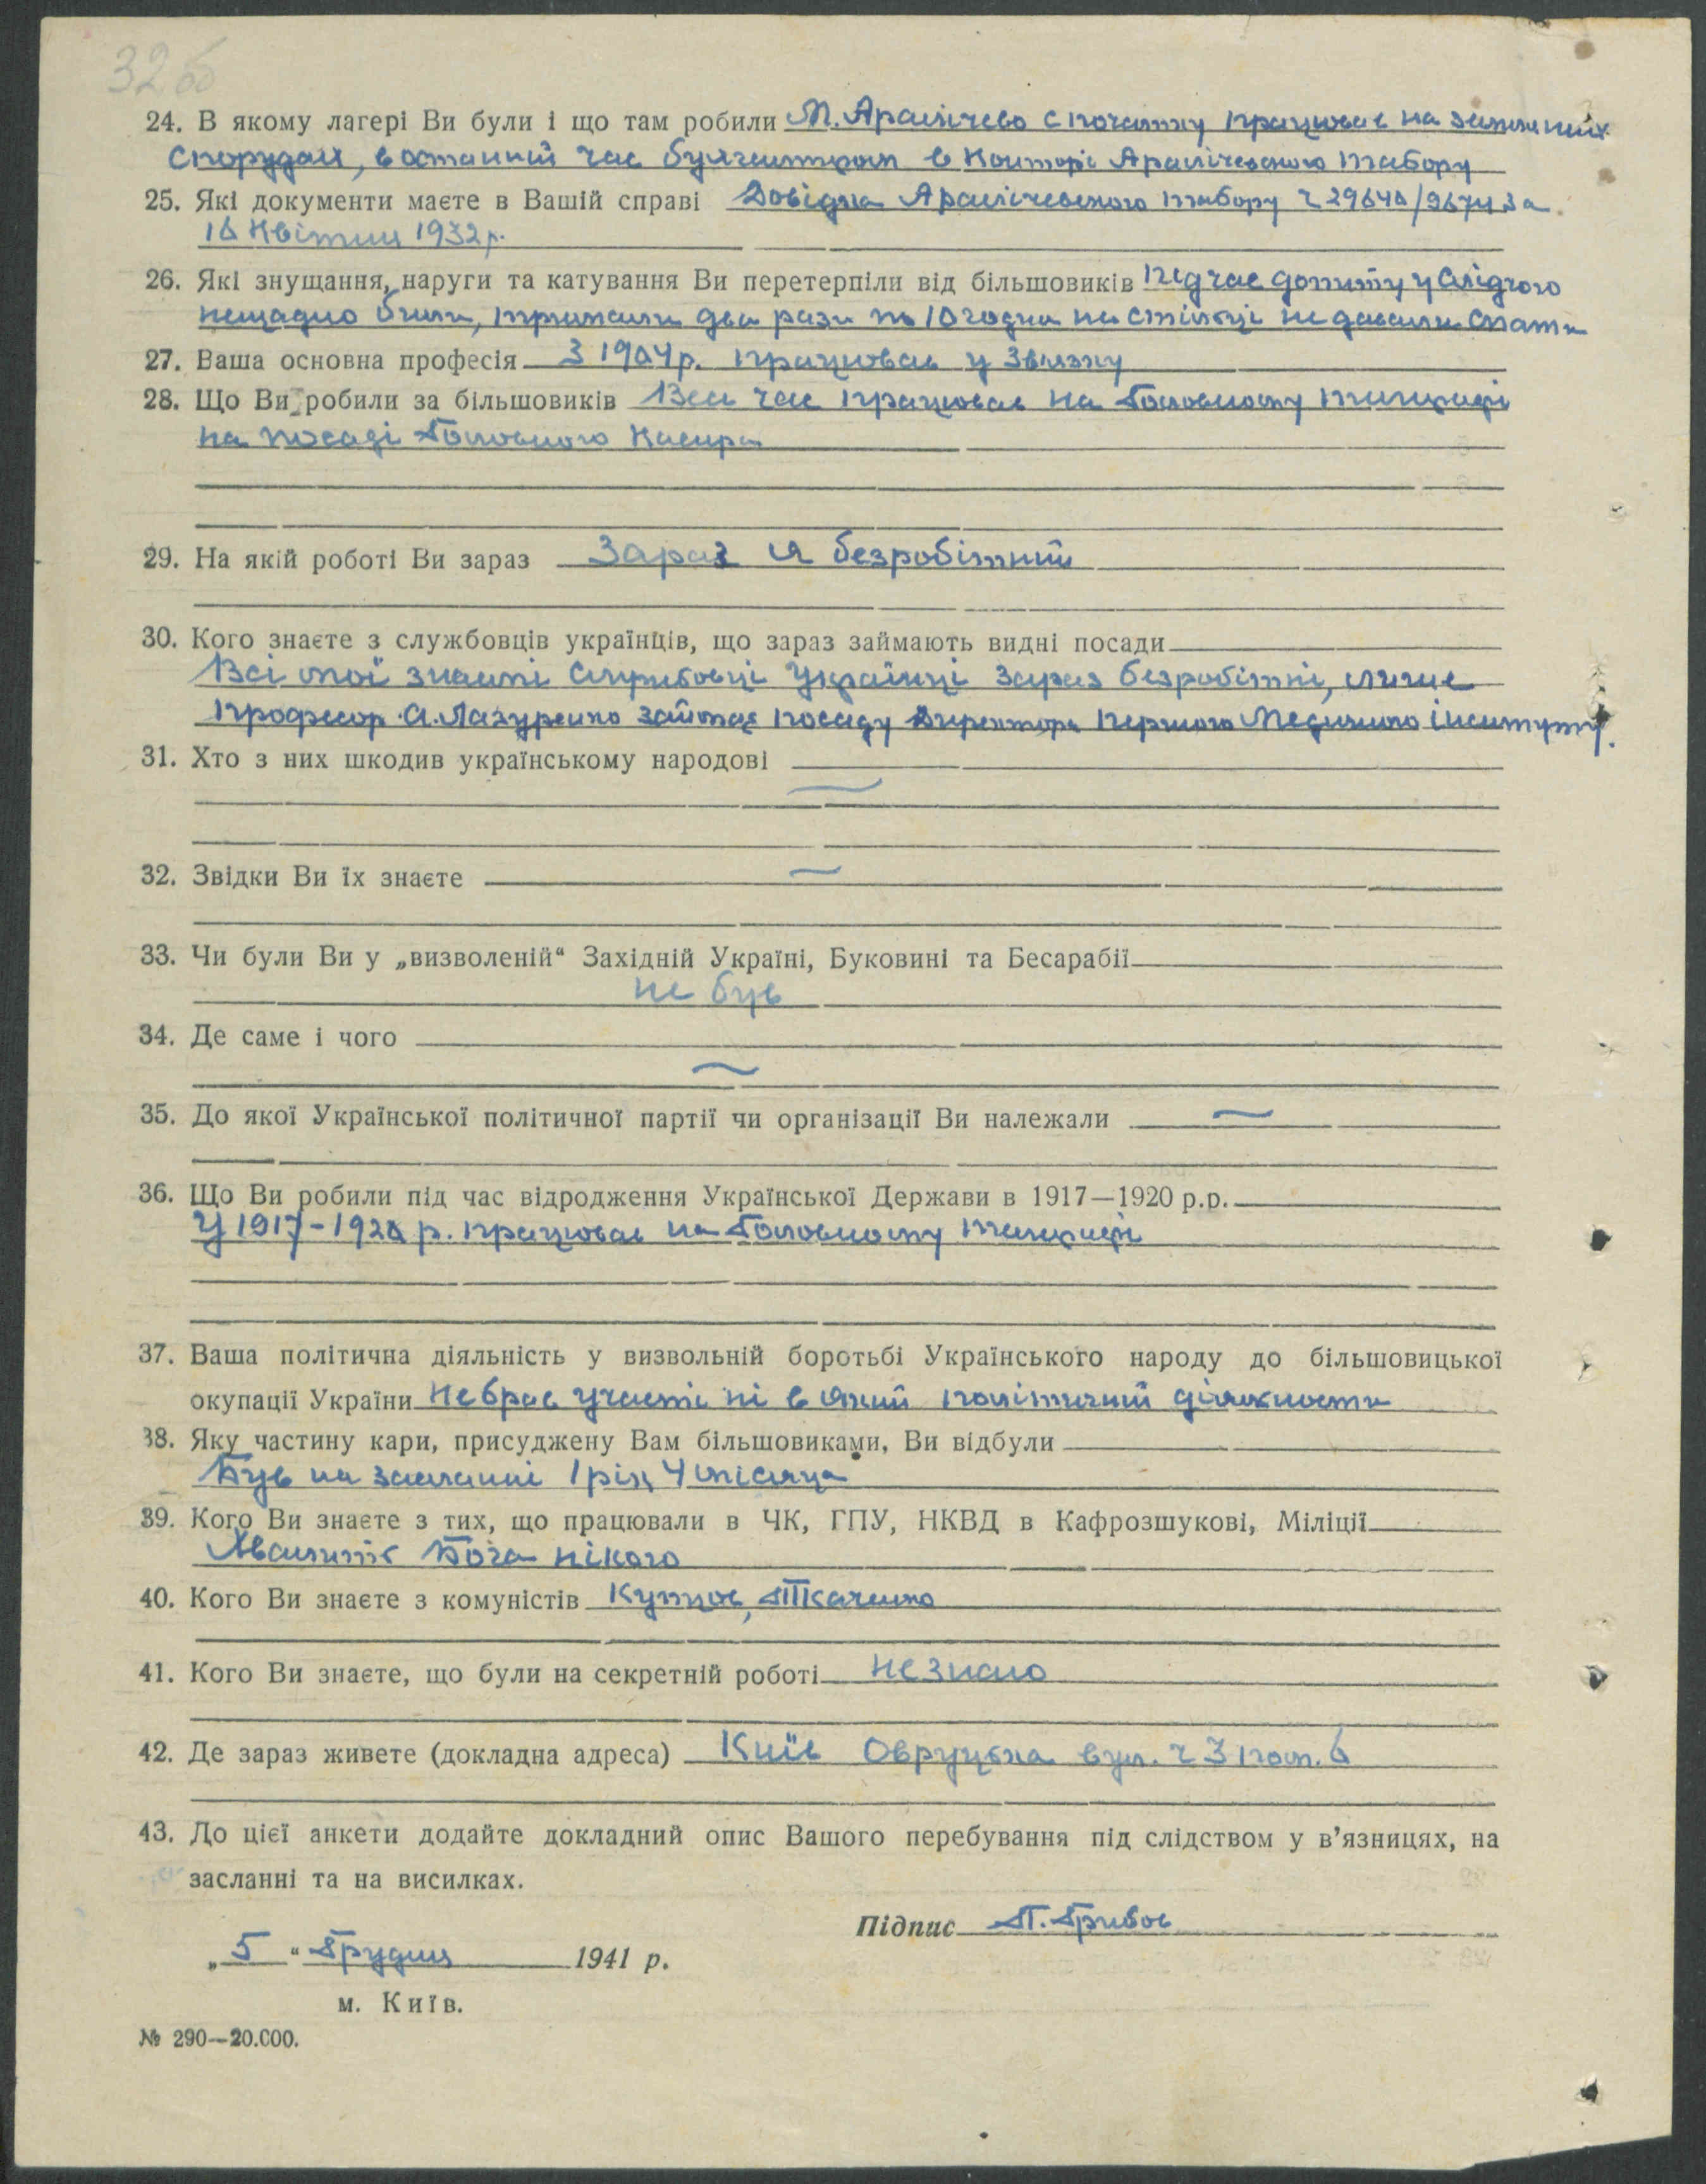 32б
24. В якому лагері Ви були і що там робили М. Аралічево с початку працював на земляних
спорудах, в останній час бухгалтером в конторі Аралічевського табору
25. Які документи маєте в Вашій справі Довідка Аралічевського табору ч за
16 Квітня 1932 р.
26. Які знущання, наруги та катування Ви перетерпіли від більшовиків Під час допиту у слідчого
нещадно били, тримали два рази по 10 годин на стільці не давали спати
27. Ваша основна професія З 1904 р. працював у Звязку
28. Що Ви робили за більшовиків Весь час працював на Головному телеграфі
на посаді Головного Касира
29. На якій роботі Ви зараз Зараз я безробітний
30. Кого знаєте з службовців українців, що зараз займають видні посади
Всі мої знаємі службовці Українці зараз безробітні, лише
професор А. Лазуренко займає посаду Директора першого Медичного інституту.
31. Хто з них шкодив українському народові —
32. Звідки Ви їх знаєте —
33. Чи були Ви у „визволеній“ Західній Україні, Буковині та Бесарабії
не був
34. Де саме і чого
—
35. До якої Української політичної партії чи організації Ви належали —
36. Що Ви робили під час відродження Української Держави в 1917—1920 р.р.
У 1917-1920 р. працював на Головному телеграфі
37. Ваша політична діяльність у визвольній боротьбі Українського народу до більшовицької
окупації України Не брав участі ні в якій політичній діяльности
38. Яку частину кари, присуджену Вам більшовиками, Ви відбули
Був на засланні 1 рік 4 місяца
39. Кого Ви знаєте з тих, що працювали в ЧК, ГПУ, НКВД в Кафрозшукові, Міліції
Хвалить Бога нікого
40. Кого Ви знаєте з комуністів Купцов, Ткаченко
41. Кого Ви знаєте, що були на секретній роботі не знаю
42. Де зараз живете (докладна адреса) Київ Овруцька вул. ч 3 пом. 6
43. До цієї анкети додайте докладний опис Вашого перебування під слідством у в’язницях, на
засланні та на висилках.
Підпис П. Грибов
„5“ Грудня 1941 р.
м. Київ.
№ 290—20.000.